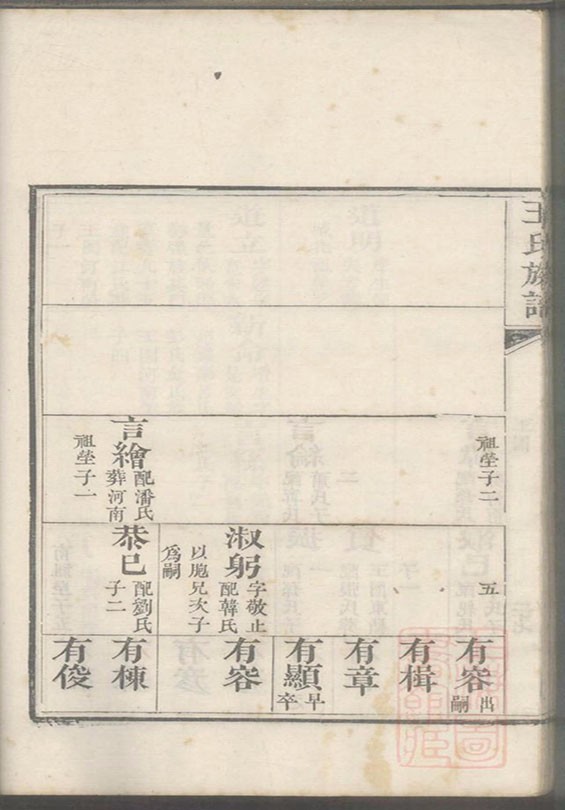 王氏族譜
祖塋子二
言繪
配潘氏
葬河南
祖塋子一
五
淑躬
字敬止
配韓氏
以胞兄次子
爲嗣
恭巳
配劉氏
子二
有容
出
嗣
有楫
有章
有顯
早
卒
有容
有棟
有俊